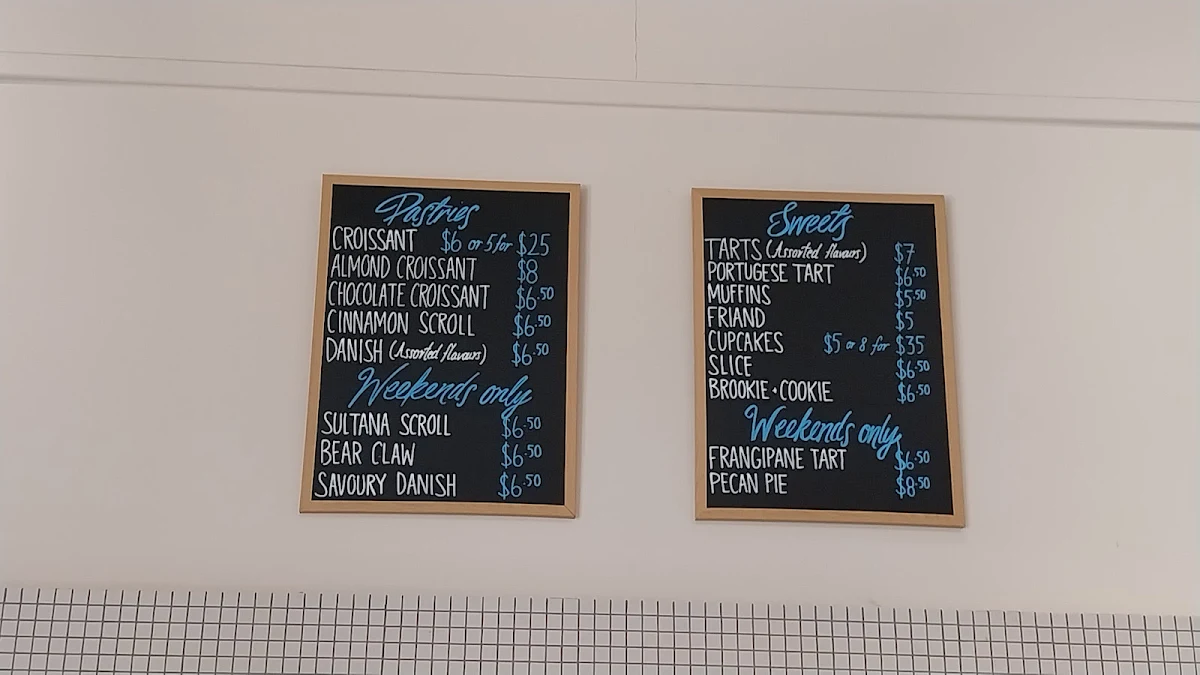 Pastries
CROISSANT $6 or 5 for $25
ALMOND CROISSANT $8
CHOCOLATE CROISSANT $6.50
CINNAMON SCROLL $6.50
DANISH (Assorted flavours) $6.50
Weekends only
SULTANA SCROLL $6.50
BEAR CLAW $6.50
SAVOURY DANISH $6.50
Sweets
TARTS (Assorted flavours) $7
PORTUGESE TART $6.50
MUFFINS $5.50
FRIAND $5
CUPCAKES $5 or 8 for $35
SLICE $6.50
BROOKIE • COOKIE $6.50
Weekends only
FRANGIPANE TART $6.50
PECAN PIE $8.50